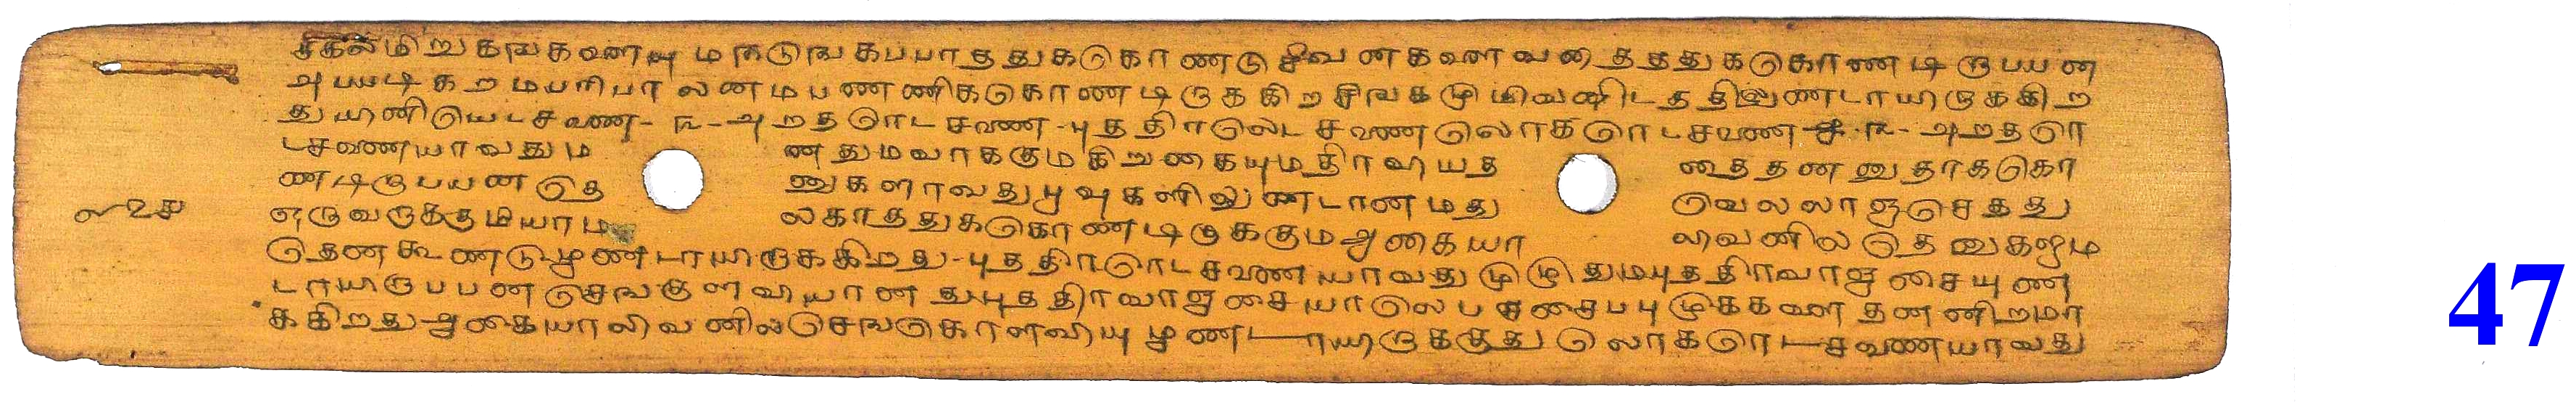 சகலமிறுகஙகளையு மநடுஙகபபாததுகடுகாணடு சீவனகளை வதைததுகடுகாணடிருபபயன
அபபடிகறமபரிபாலனமபணணிகடுகாணடிருககிறசிஙகமுமிவனிடததிலுணடாயிருககிற
துயினியெடசவணை- ௩ -அறதரொடசவணை-புததிரடுலடசவணைடுலாகரொடசவணை ௩- அறதரொ
டசவணையாவதும னதுமவாககுமகிறுகையுமதிரவியத தைதனனுதாகடுகா
ணடிருபபயனடுத னுகளாவதுபூவுகளிலுணடானமது வெலலாஞசெதது
ஒருவருககுமியாம லகாததுகடுகாணடிருககுமஆகையா லிவனிலதெனுகளும
தெனகூணடுமுணடாயிருககிறது-புததிரரொடசவணையாவதுமுழுதுமபுததிரவாஞசையுண
டாயிருபபனசெஙகுளவியானதுபுததிரவாஞசையாலெபசசைபபுழுககளை தனனிறமா
ககிறது-ஆகையாலிவனிலசெஙகொளவியுமுணடாயிருககுது லொகரொடசவணையாவது
47